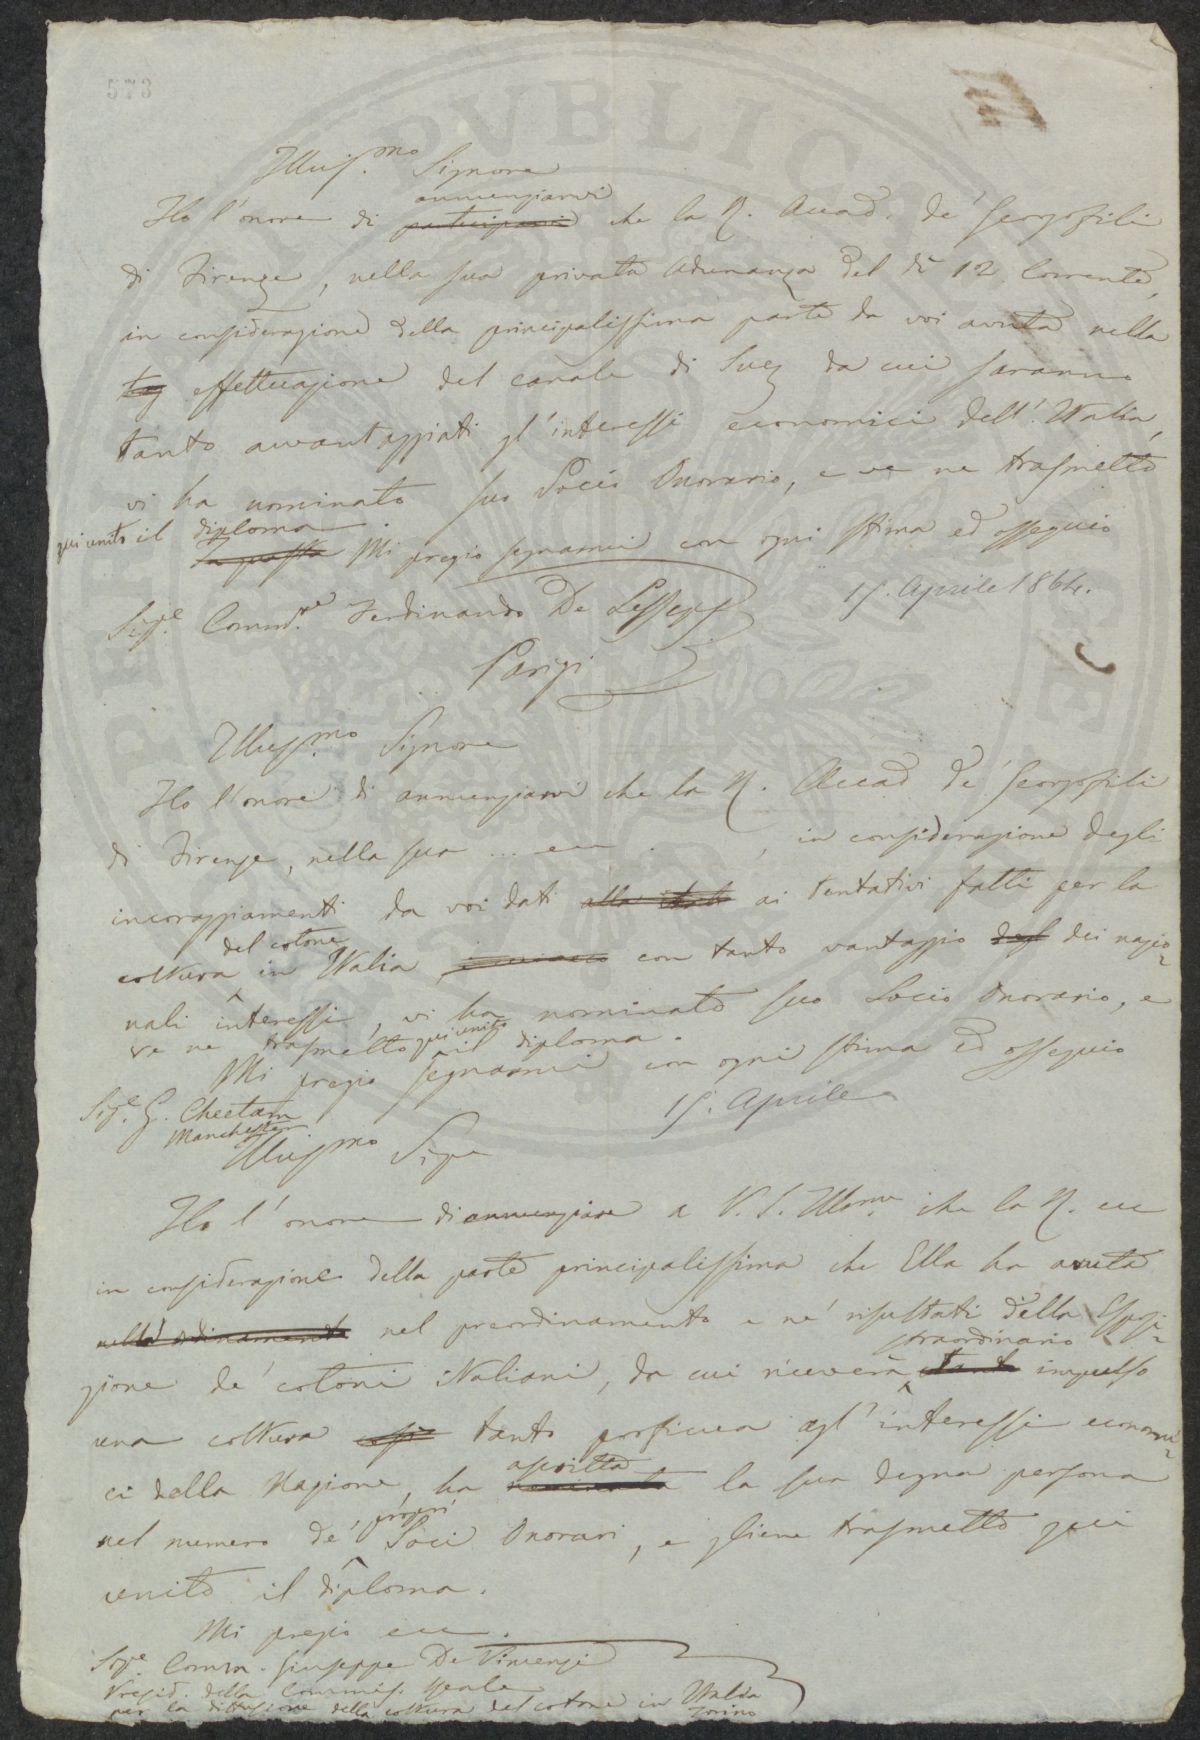 573
Illus.mo Signore
annunziarvi
Ho l'onore di participarvi che la R. Accad. de' Georgofili
di Firenze, nella sua privata Adunanza del dì 12 Corrente,
in considerazione della principalissima parte da voi avuta nella
effettuazione del canale di Suez da cui saranno
tanto avvantaggiati gl'interessi economici dell'Italia,
vi ha nominato suo Socio Onorario, e ve ne trasmetto
qui unito il diploma
Mi pregio segnarmi con ogni stima ed ossequio
15. Aprile 1864.
Sig.e Comm.re Ferdinando De Lesseps
Parigi
Illus.mo Signore
Ho l'onore di annunziarvi che la R. Accad de' Georgofili
di Firenze, nella sua ... ecc , in considerazione degli
incoraggiamenti da voi dati ai tentativi fatti per la
del cotone
coltura in Italia, con tanto vantaggio del dei nazio-
nali interessi, vi ha nominato suo Socio Onorario, e
ve ne trasmetto qui unito il diploma.
Mi pregio segnarmi con ogni stima ed ossequio
15. Aprile
Sig.e G. Cheetam
Manchester
Illus.mo Sige
Ho l'onore di annunziare a V. S. Illma. che la R. ecc
in considerazione della parte principalissima che Ella ha avuta
nell'ordinamento nel preordinamento e ne' risultati della Esposi-
straordinario
zione de' cotoni italiani, da cui riceverà tanto impulso
una coltura così tanto proficua agl'interessi economi-
ascritta
ci della Nazione, ha nominata la sua degna persona
propri
nel numero de' Soci Onorari, e gliene trasmetto qui
unito il diploma.
Mi pregio ecc.
Sig.e Comm. Giuseppe De Vincenzi
Presid. della Commiss. Reale
per la diffusione della coltura del cotone in Italia
Torino